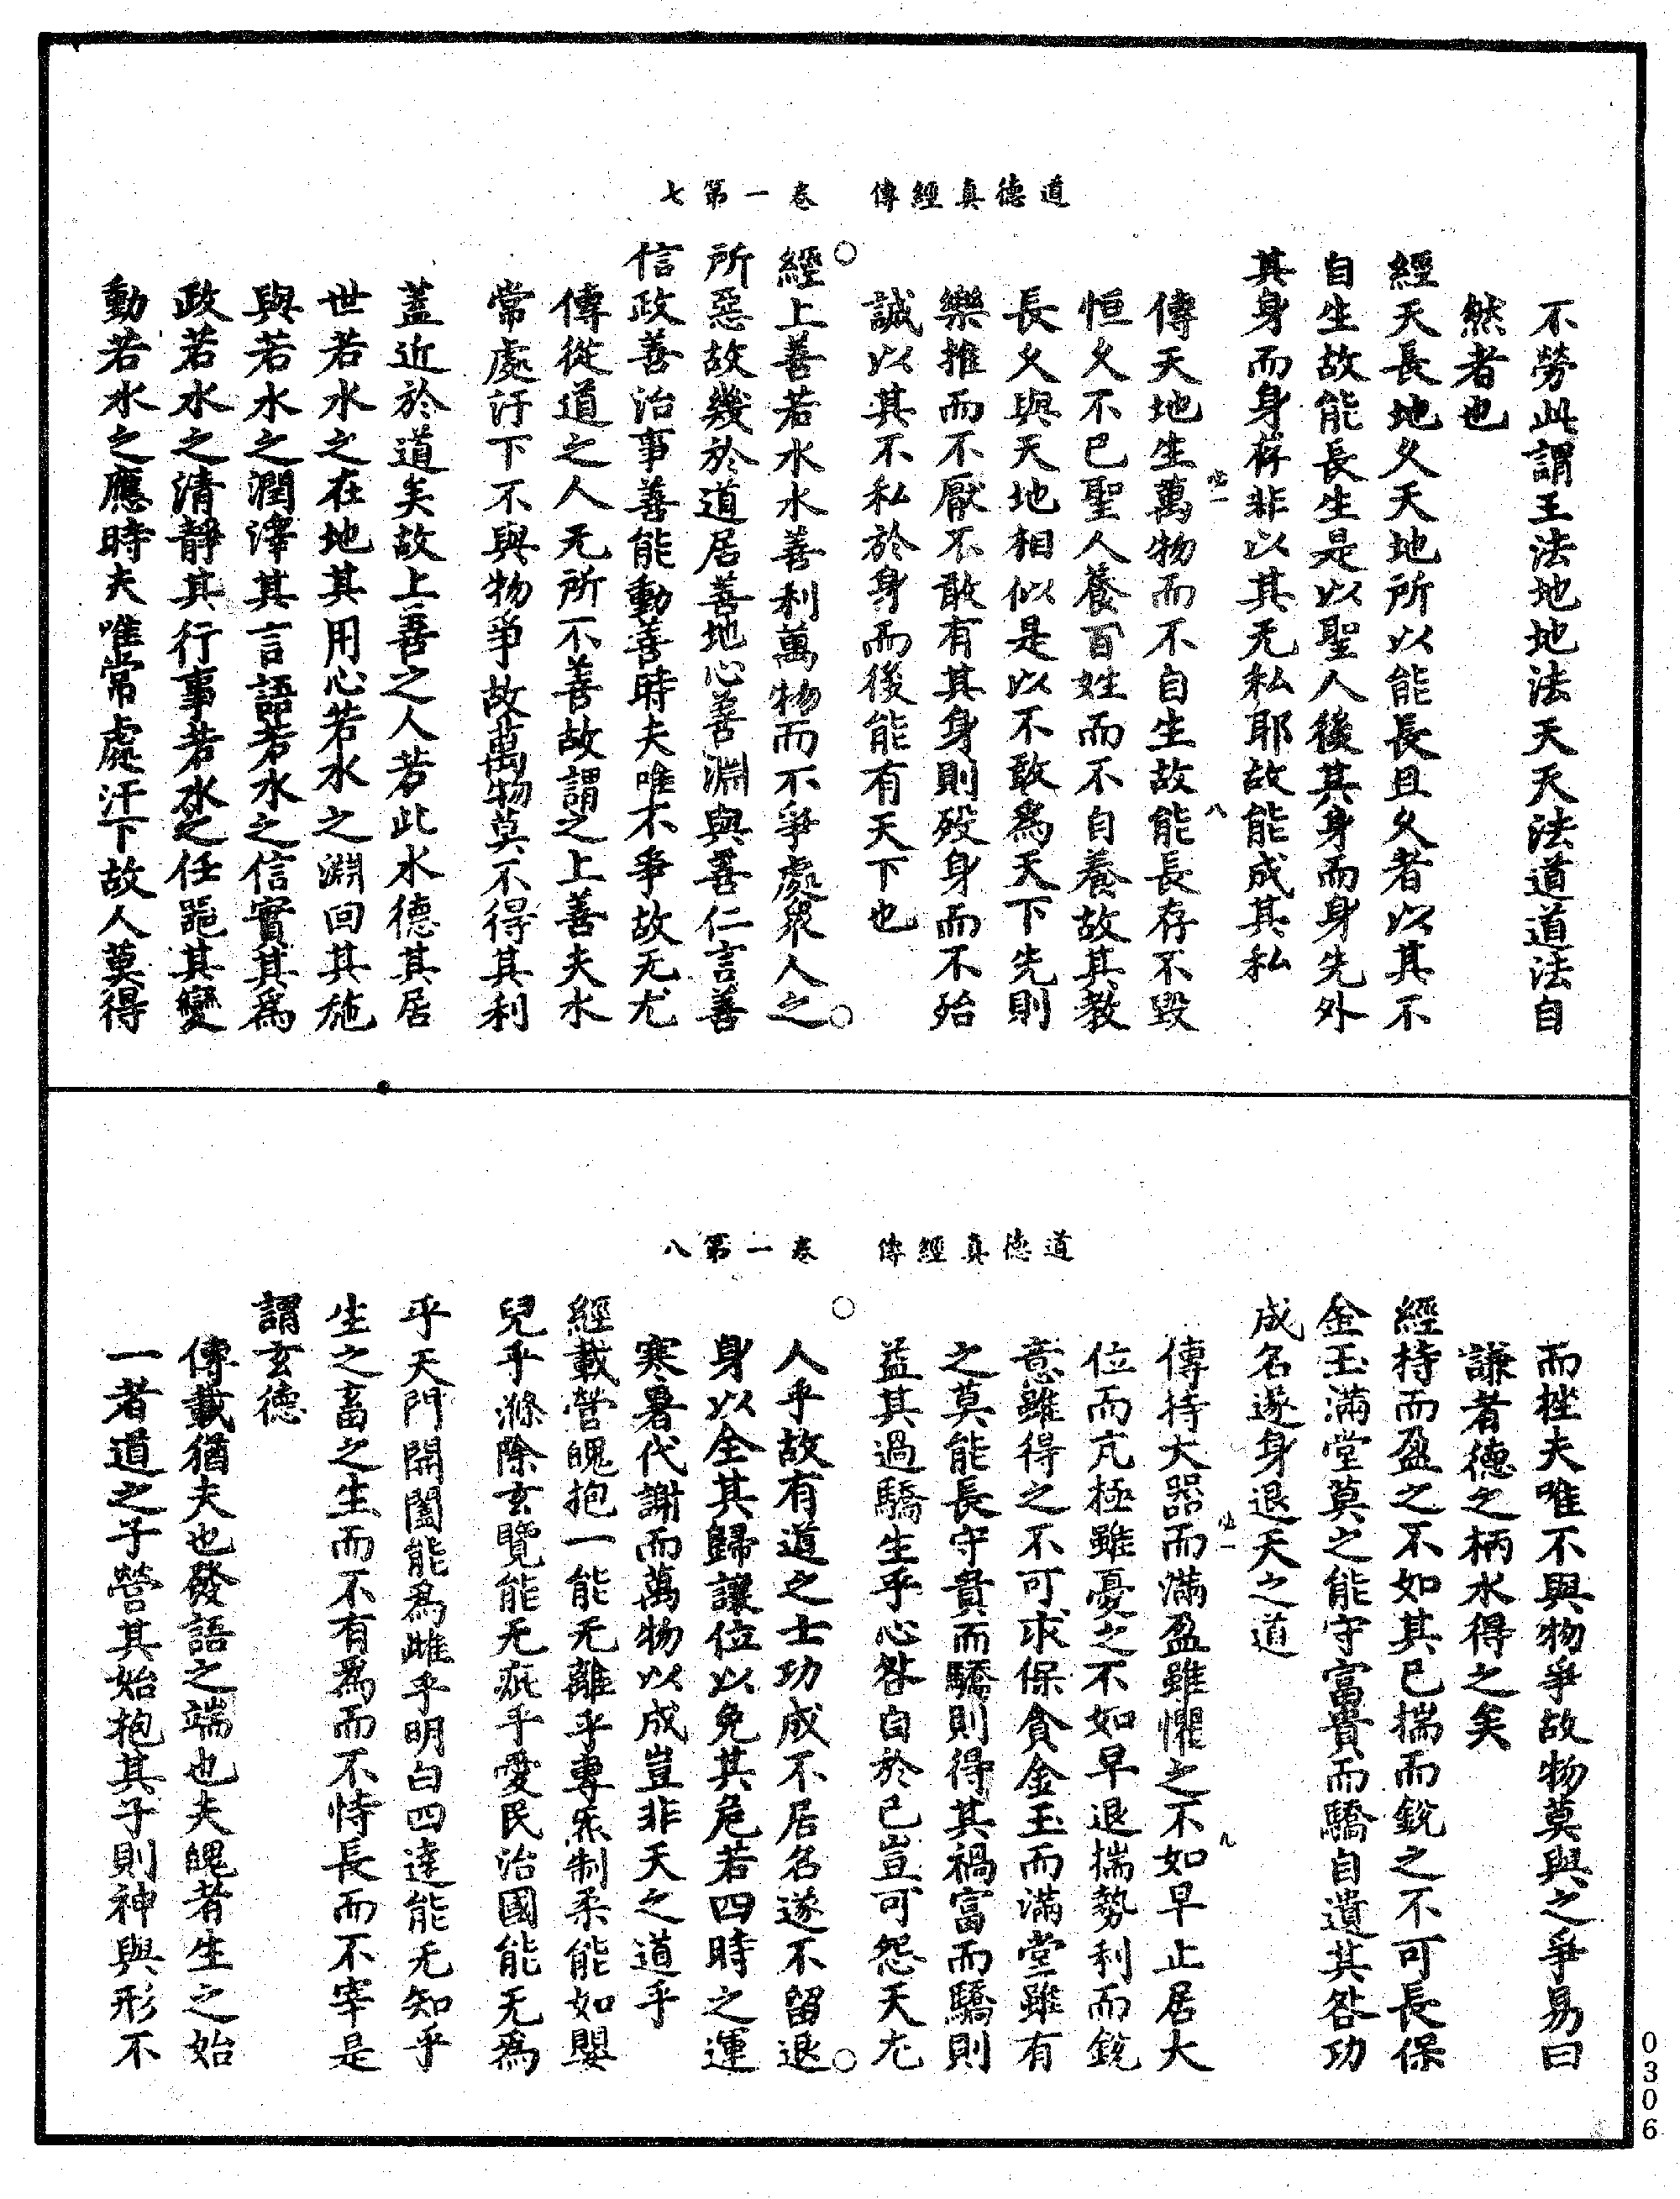 道德真經傳　卷一第七
不勞此謂王法地地法天天法道道法自
然者也
經天長地久天地所以能長且久者以其不
自生故能長生是以聖人後其身而身先外
其身而身存非以其无私耶故能成其私
傳天地生萬物而不自生故能長存不毀
恒久不已聖人養百姓而不自養故其教
長久與天地相似是以不敢爲天下先則
樂推而不厭不敢有其身則歿身而不殆
誠以其不私於身而後能有天下也
經上善若水水善利萬物而不爭處衆人之
所惡故幾於道居善地心善淵與善仁言善
信政善治事善能動善時夫唯不爭故无尤
傳從道之人无所不善故謂之上善夫水
常處汙下不與物爭故萬物莫不得其利
蓋近於道矣故上善之人若此水德其居
世若水之在地其用心若水之淵回其施
與若水之潤澤其言語若水之信實其爲
政若水之清靜其行事若水之任器其變
動若水之應時夫唯常處汙下故人莫得
道德真經傳　卷一第八
而挫夫唯不與物爭故物莫與之爭易曰
謙者德之柄水得之矣
經持而盈之不如其已揣而銳之不可長保
金玉滿堂莫之能守富貴而驕自遺其咎功
成名遂身退天之道
傳持大器而滿盈雖懼之不如早止居大
位而亢極雖憂之不如早退揣勢利而銳
意雖得之不可求保貪金玉而滿堂雖有
之莫能長守貴而驕則得其禍富而驕則
益其過驕生乎心咎自於己豈可怨天尤
人乎故有道之士功成不居名遂不留退
身以全其歸讓位以免其危若四時之運
寒暑代謝而萬物以成豈非天之道乎
經載營魄抱一能无離乎專炁制柔能如嬰
兒乎滌除玄覽能无疵乎愛民治國能无爲
乎天門開闔能爲雌乎明白四達能无知乎
生之畜之生而不有爲而不恃長而不宰是
謂玄德
傳載猶夫也發語之端也夫魄者生之始
一者道之子營其始抱其子則神與形不
0306